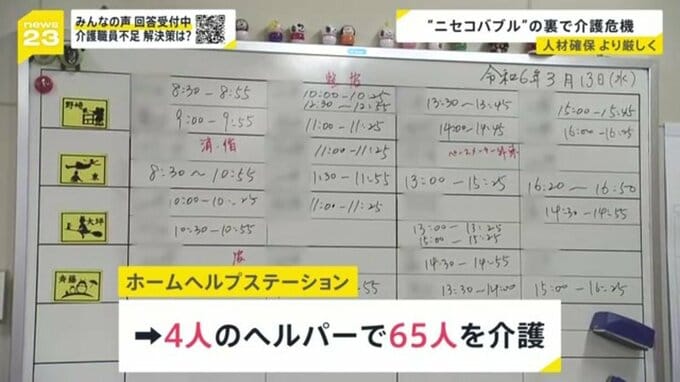 news
23
みんなの声 回答受付中
介護職員不足 解決策は?
“ニセコバブル”の裏で介護危機
人材確保 より厳しく
令和6年3月13日(水)
野崎
8:30-8:55
10:00-10:25
12:30~12:55
13:30-13:45
15:00-15:45
9:00-9:55
11:00-11:25
14:00-14:45
16:00-16:45
11:00-11:25
8:30~10:55
11:30-11:55
13:00-15:25
16:20-16:50
10:00-10:25
11:00-11:25
14:30-14:55
大坪
10:30-10:55
13:00-13:25
15:00-15:25
斉藤
14:30-14:55
13:30-14:00
15:00-16:25
ホームヘルプステーション
➡4人のヘルパーで65人を介護